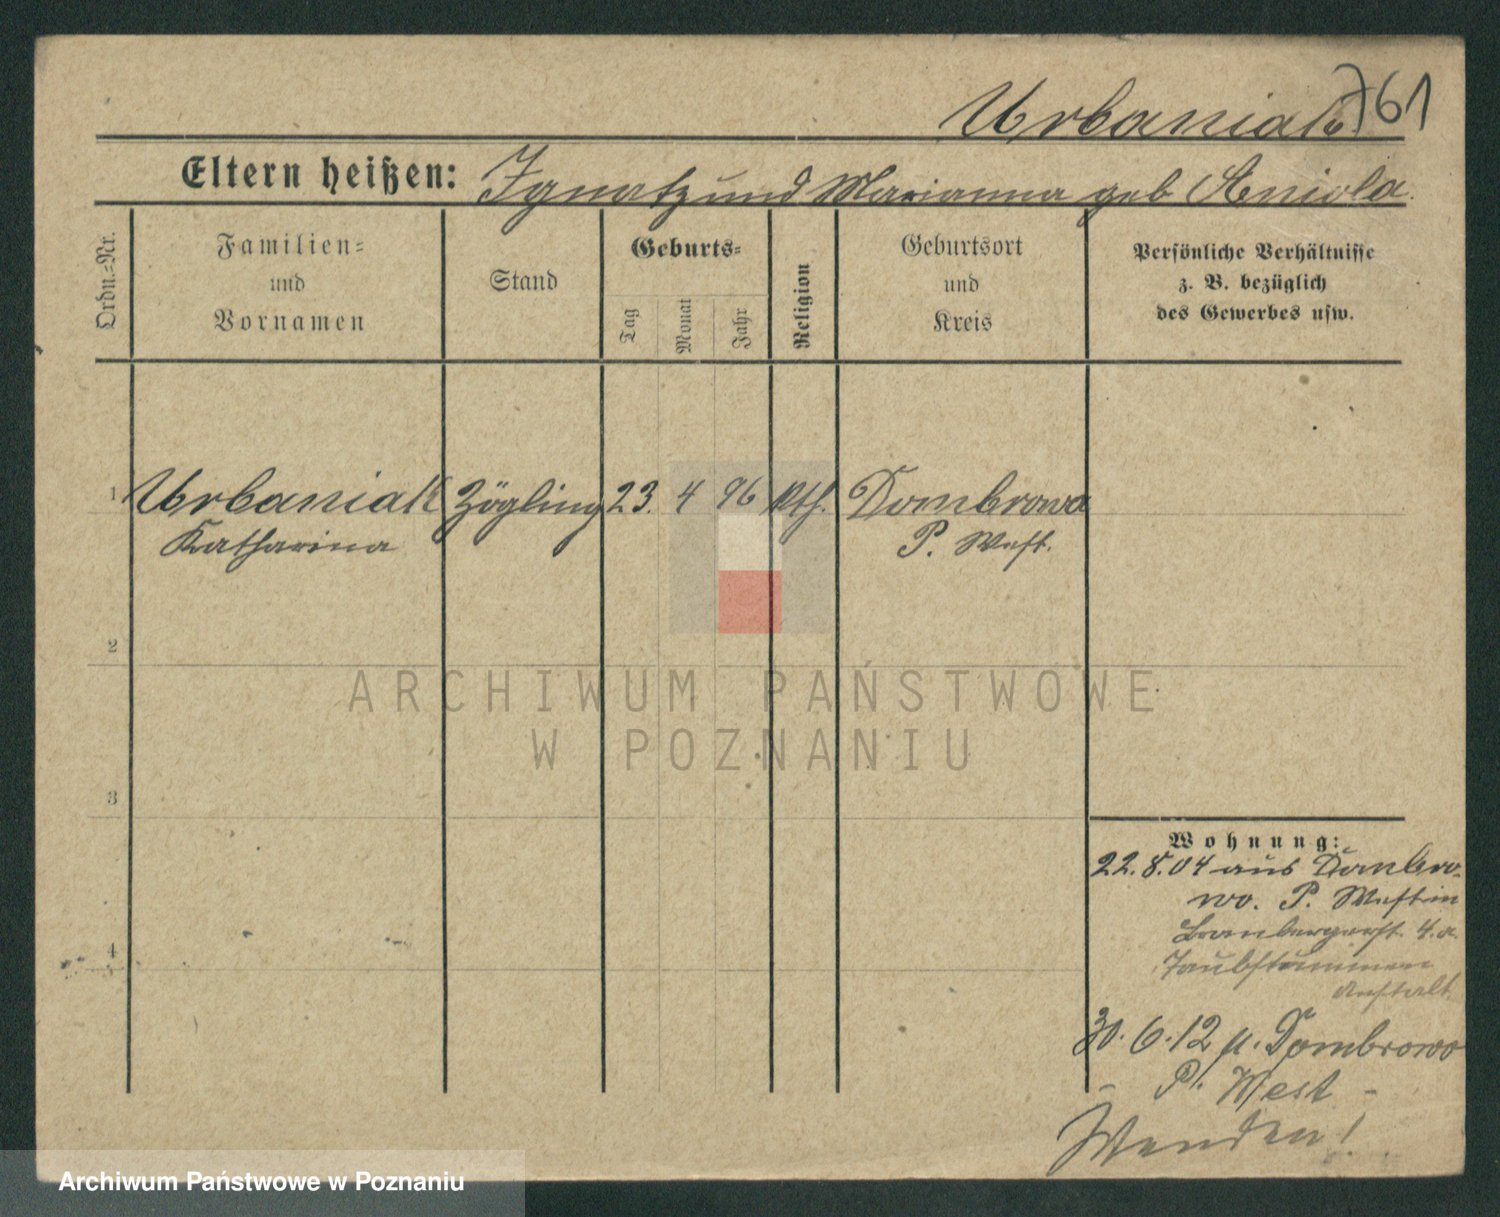 Urbaniak 761
Eltern heißen: Ignatz und Marianna geb Aniola.
Ordn.-Nr.
Familien-
und
Vornamen
Stand
Geburts-
Tag
Monat
Jahr
Religion
Geburtsort
und
Kreis
Persönliche Verhältnisse
z. B. bezüglich
des Gewerbes usw.
1 Urbaniak Zögling 23. 4 96 kth. Dombrowa
Katharina P. West.
2
ARCHIWUM PAŃSTWOWE
W POZNANIU
3
Wohnung:
22.8.04 aus Dombro-
wo. P. West in
Brombergerst. 4.a.
4
Taubstummen
Anstalt.
30.6.12 n. Dombrowo
P. West -
Wenden!
Archiwum Państwowe w Poznaniu